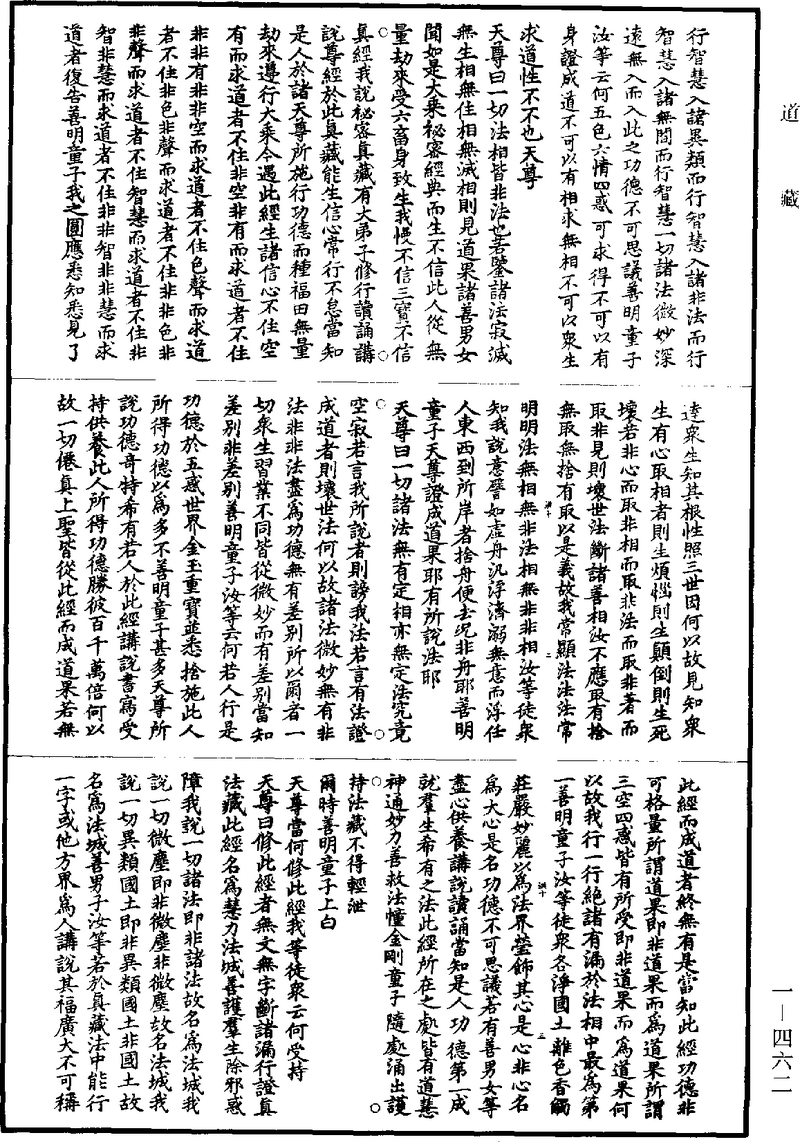 道藏
一—四六二
行智慧入諸異類而行智慧入諸非法而行
智慧入諸無間而行智慧一切諸法微妙深
遠無入而入此之功德不可思議善明童子
汝等云何五色六情四惑可求得不可以有
身證成道不可以有相求無相不可以眾生
求道性不不也天尊
天尊曰一切法相皆非法也若鑒諸法寂滅
無生相無住相無滅相則見道果諸善男女
聞如是大乘祕密經典而生不信此人從無
量劫來受六畜身致生我慢不信三寶不信
真經我說祕密真藏有大弟子修行讀誦講
說尊經於此真藏能生信心常行不怠當知
是人於諸天尊所施行功德而種福田無量
劫來遵行大乘今遇此經生諸信心不住空
有而求道者不住非空非有而求道者不住
非非有非非空而求道者不住色聲而求道
者不住非色非聲而求道者不住非非色非
非聲而求道者不住智慧而求道者不住非
智非慧而求道者不住非非智非非慧而求
道者復告善明童子我之圓應悉知悉見了
達眾生知其根性照三世因何以故見知眾
生有心取相者則生煩惱則生顛倒則生死
壞若非心而取非相而取非法而取非著而
取非見則壞世法斷諸善相汝不應取有捨
無取無捨有取以是義故我常顯法法法常
明明法無相無非法相無非非相汝等徒眾
知我說意譬如虛舟汎浮濟溺無意而浮任
人東西到所岸者捨舟便去況非舟耶善明
童子天尊證成道果耶有所說法耶
天尊曰一切諸法無有定相亦無定法究竟
空寂若言我所說者則謗我法若言有法證
成道者則壞世法何以故諸法微妙無有非
法非非法盡為功德無有差別所以爾者一
切眾生習業不同皆從微妙而有差別當知
差別非差別善明童子汝等云何若人行是
功德於五惑世界金玉重寶並悉捨施此人
所得功德以為多不善明童子甚多天尊所
說功德奇特希有若人於此經講說書寫受
持供養此人所得功德勝彼百千萬倍何以
故一切僊真上聖皆從此經而成道果若無
此經而成道者終無有是當知此經功德非
可格量所謂道果即非道果而為道果所謂
三空四惑皆有所受即非道果而為道果何
以故我行一行絕諸有漏於法相中最為第
一善明童子汝等徒眾各淨國土離色香觸
莊嚴妙麗以為法界瑩飾其心是心非心名
為大心是名功德不可思議若有善男女等
盡心供養講說讀誦當知是人功德第一成
就羣生希有之法此經所在之處皆有道慧
神通妙力善救法幢金剛童子隨處涌出護
持法藏不得輕泄
爾時善明童子上白
天尊當何修此經我等徒眾云何受持
天尊曰修此經者無文無字斷諸漏行證真
法藏此經名為慧力法城善護羣生除邪惑
障我說一切諸法即非諸法故名為法城我
說一切微塵即非微塵非微塵故名法城我
說一切異類國土即非異類國土非國土故
名為法城善男子汝等若於真藏法中能行
一字或他方界為人講說其福廣大不可稱